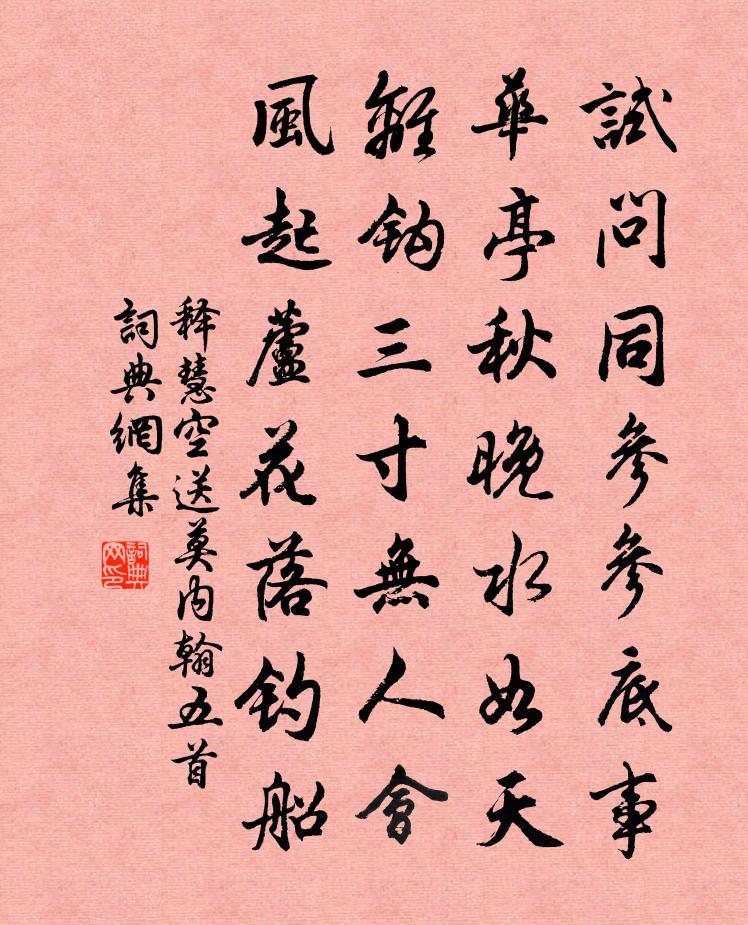 試問同參參底事
華亭秋晚水如天
離鈎三寸無人會
風起蘆花落釣船
释慧空送莫内翰五首
詞典網集
詞典网印